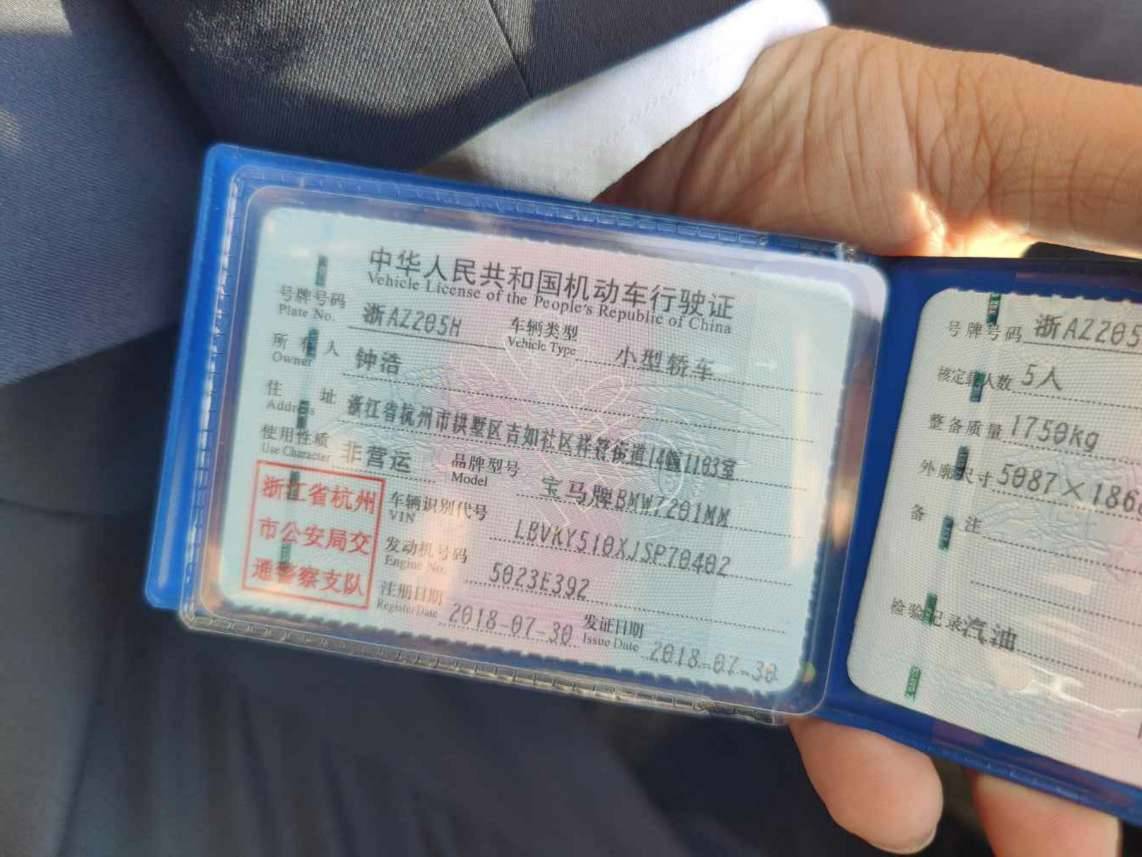 中华人民共和国机动车行驶证
Vehicle License of the People's Republic of China
号牌号码 浙AZ205H 车辆类型 小型轿车
Plate No. Vehicle Type
所有人 钟浩
Owner
住址 浙江省杭州市拱墅区吉如社区祥符街道14幢1103室
Address
使用性质 非营运 品牌型号 宝马牌BMW7201MM
Use Character Model
浙江省杭州
市公安局交
通警察支队
车辆识别代号 LBVKY510XJSP70402
VIN
发动机号码 5023E392
Engine No.
注册日期 2018-07-30 发证日期 2018-07-30
Register Date Issue Date
号牌号码 浙AZ205
核定载人数 5人
整备质量 1750kg
外廓尺寸 5087×186
备注
检验记录 汽油